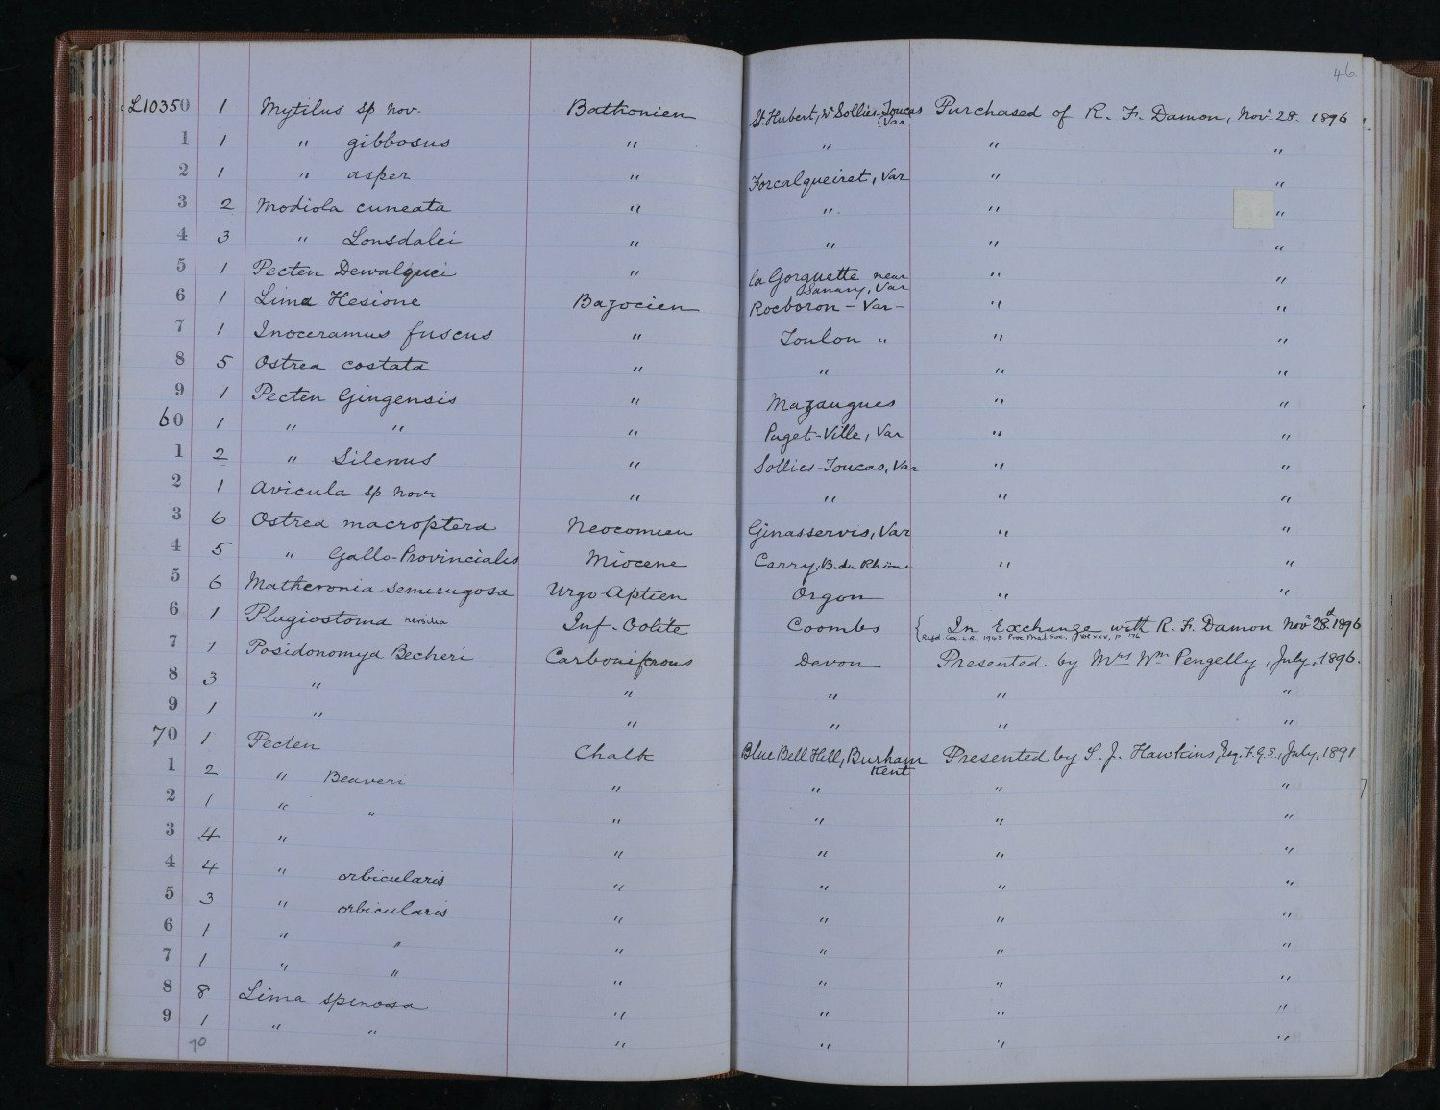 46
L10350 1 Mytilus sp nov. Bathonien St Hubert, Sollies-Toucas Var Purchased of R. F. Damon, Nov. 28. 1896
1 1 " gibbosus " " " "
2 1 " asper " Forcalqueiret, Var " "
3 2 Modiola cuneata " " " "
4 3 " Lonsdalei " " " "
5 1 Pecten Dewalquei " la Gorguette near Sanary, Var " "
6 1 Lima Hesione Bajocien Rocboron - Var - " "
7 1 Inoceramus fuscus " Toulon " " "
8 5 Ostrea costata " " " "
9 1 Pecten Gingensis " Mazaugues " "
60 1 " " " Puget-Ville, Var " "
1 2 " Silenus " Sollies-Toucas, Var " "
2 1 Avicula sp nov. " " " "
3 6 Ostrea macroptera Neocomien Ginasservis, Var " "
4 5 " Gallo-Provincialis Miocene Carry, B. du Rhône " "
5 6 Matheronia semirugosa Urgo-Aptien Orgon " "
6 1 Plagiostoma Inf-Oolite Coombs { In Exchange with R. F. Damon Novr 28th 1896
7 1 Posidonomya Becheri Carboniferous Devon Presented by Mrs Wm Pengelly, July, 1896.
8 3 " " " " "
9 1 " " " " "
70 1 Pecten Chalk Blue Bell Hill, Burham Kent Presented by S. J. Hawkins, Esq. F.G.S., July, 1891
1 2 " Beaveri " " " "
2 1 " " " " " "
3 4 " " " " "
4 4 " orbicularis " " " "
5 3 " orbicularis " " " "
6 1 " " " " " "
7 1 " " " " " "
8 8 Lima spinosa " " " "
9 1 " " " " " "
70